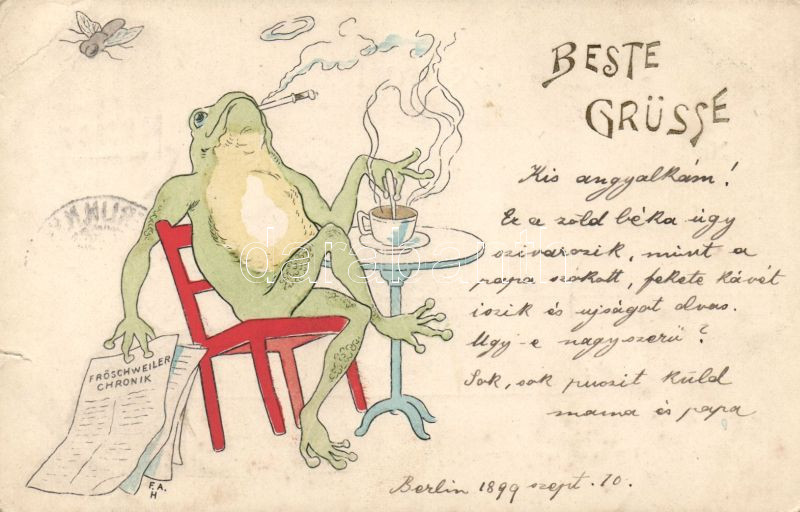 BESTE
GRÜSSE
Kis angyalkám!
Ez a zöld béka úgy
szivarozik, mint a
papa szokott, fekete kávét
iszik és ujságot olvas.
Ugy-e nagyszerű?
Sok, sok puszit küld
mama és papa
Berlin 1899 szept. 10.
FRÖSCHWEILER
CHRONIK
F.A.
H